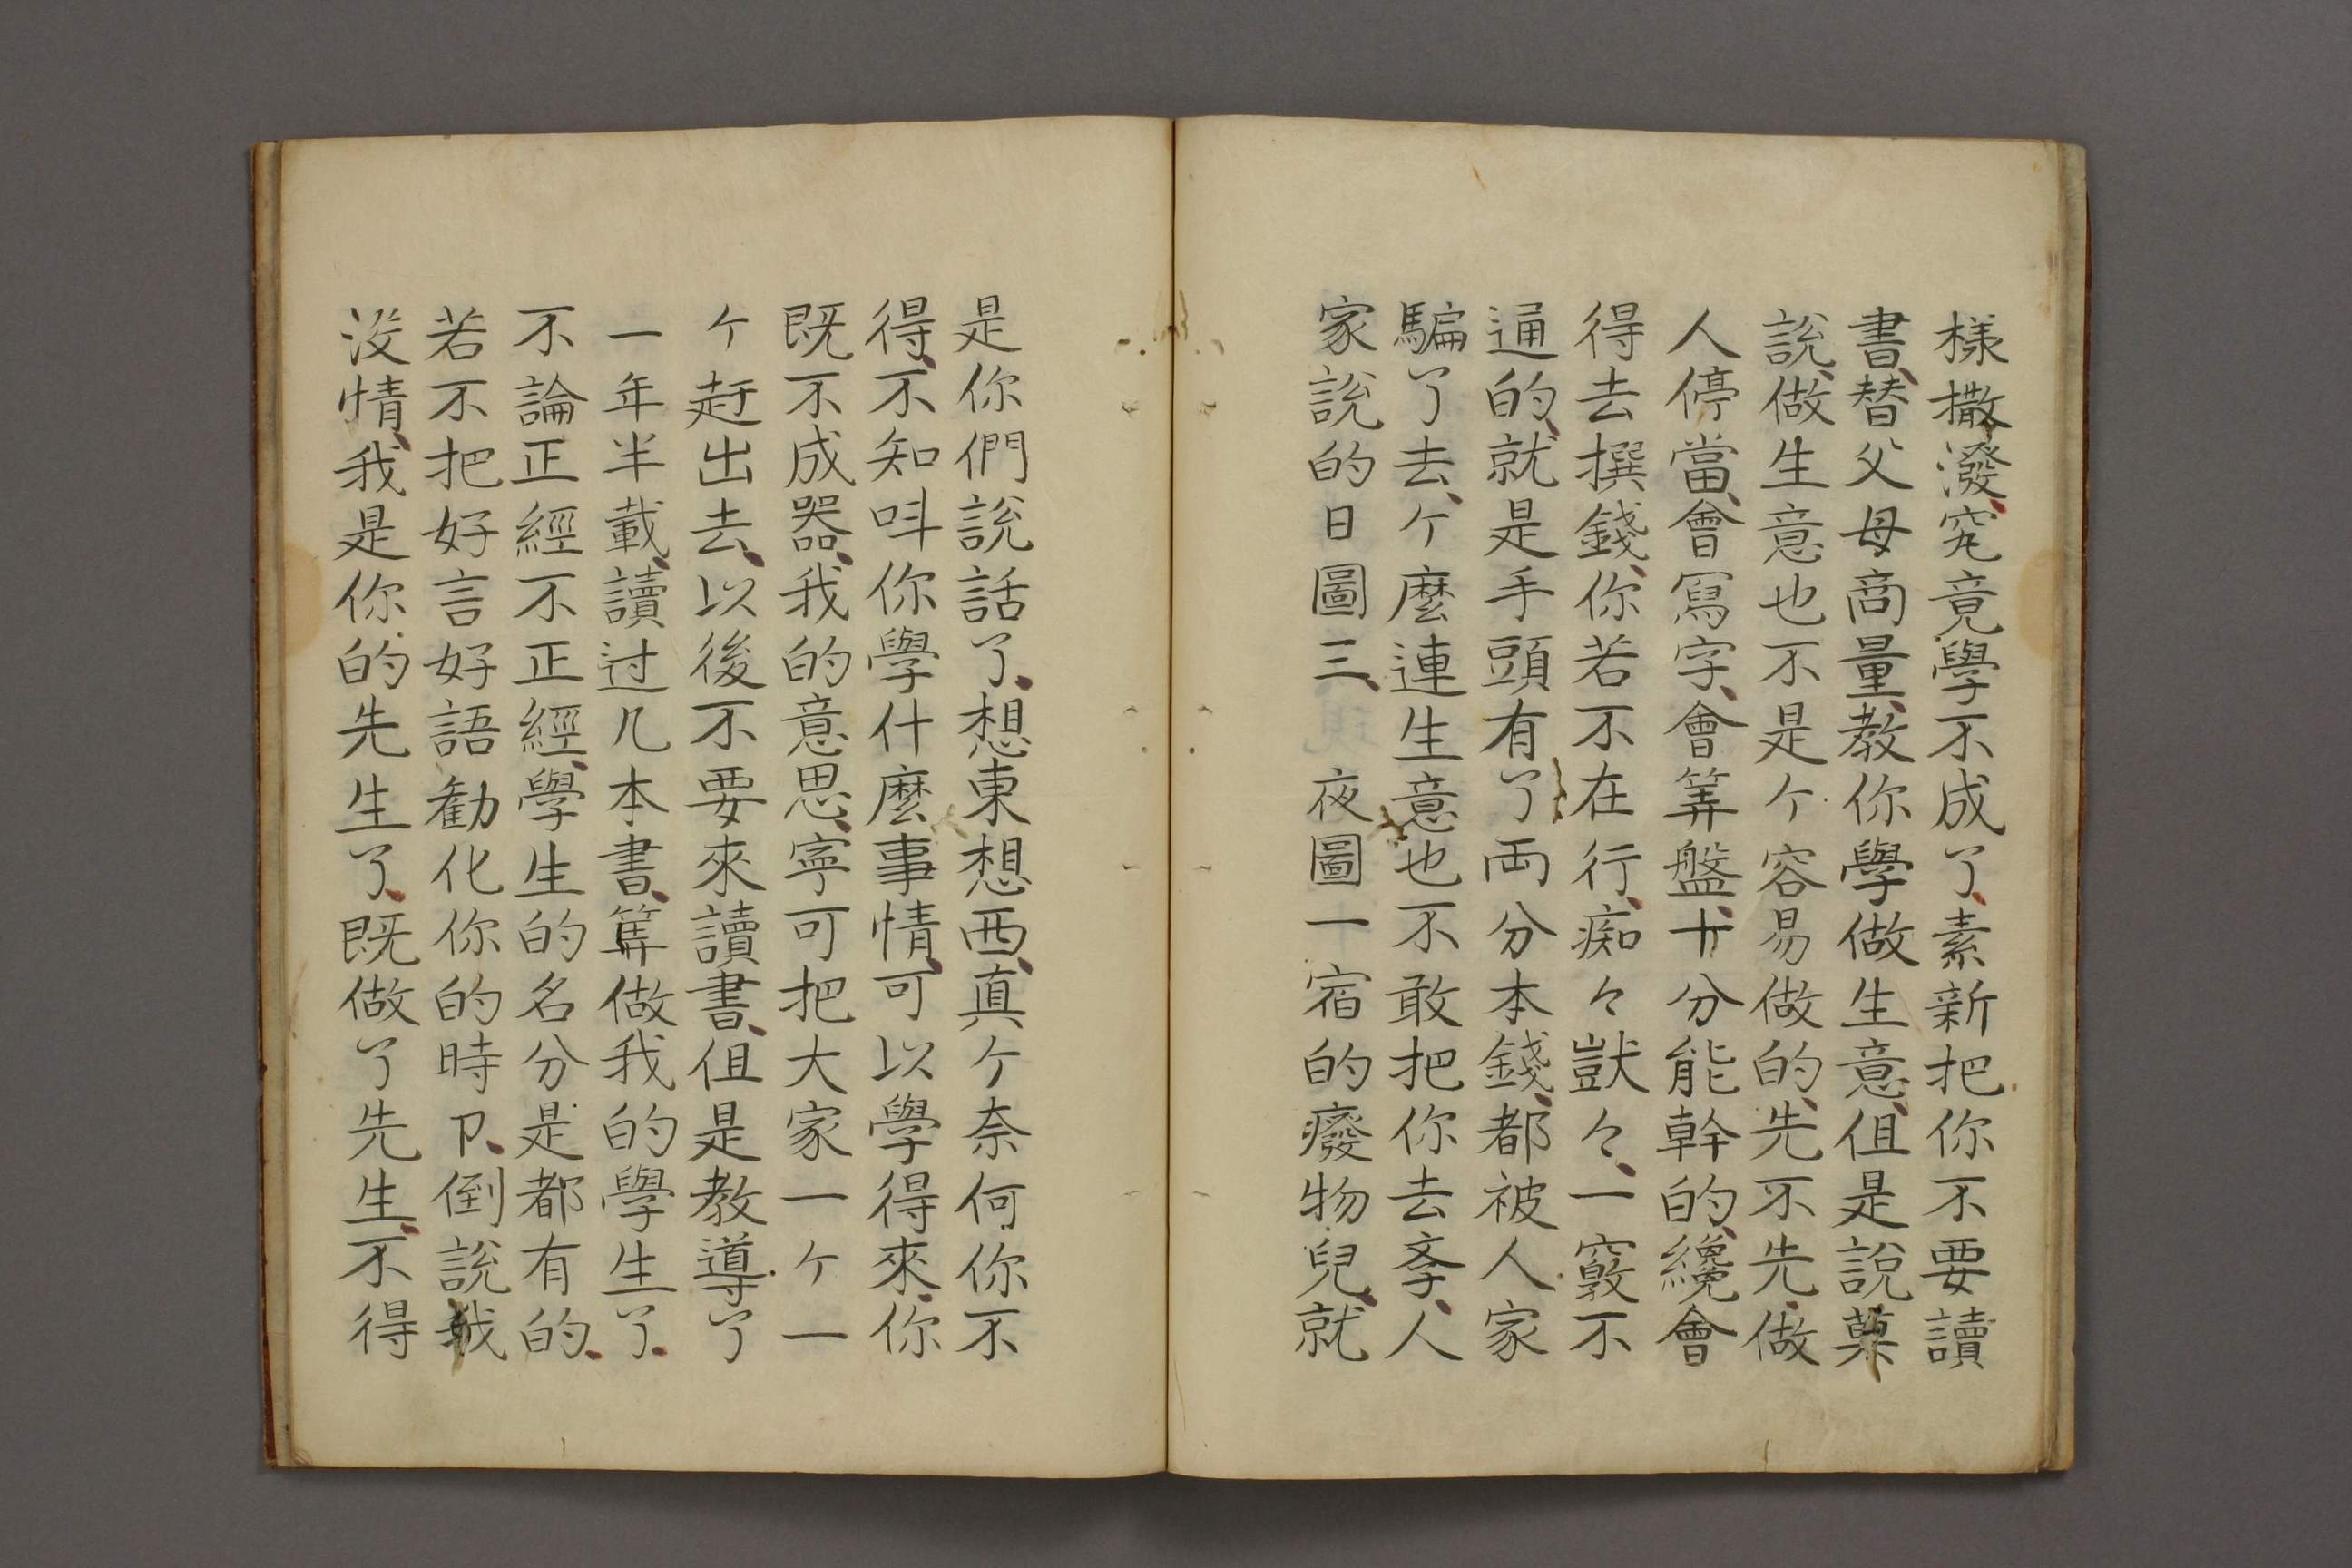 樣撒潑、究竟學不成了、素新把你不要讀
書、替父母商量、教你學做生意、但是說菓
說、做生意也不是ケ容易做的、先不先、做
人停當、會寫字、會筭盤、十分能幹的、纔會
得去撰錢、你若不在行、痴々獃々、一竅不
通的、就是手頭有了両分本錢、都被人家
騙了去、ケ麼連生意也不敢把你去斈、人
家說的日圖三、夜圖一宿的癈物兒、就
是你們說話了、想東想西、真ケ奈何你不
得、不知呌你學什麼事情、可以學得來、你
既不成器、我的意思、寧可把大家一ケ一
ケ赶出去、以後不要來讀書、但是教導了
一年半載、讀过几本書、筭做我的學生了、
不論正經不正經、學生的名分是都有的、
若不把好言好語勸化你的時卩、倒說我
沒情、我是你的先生了、既做了先生、不得